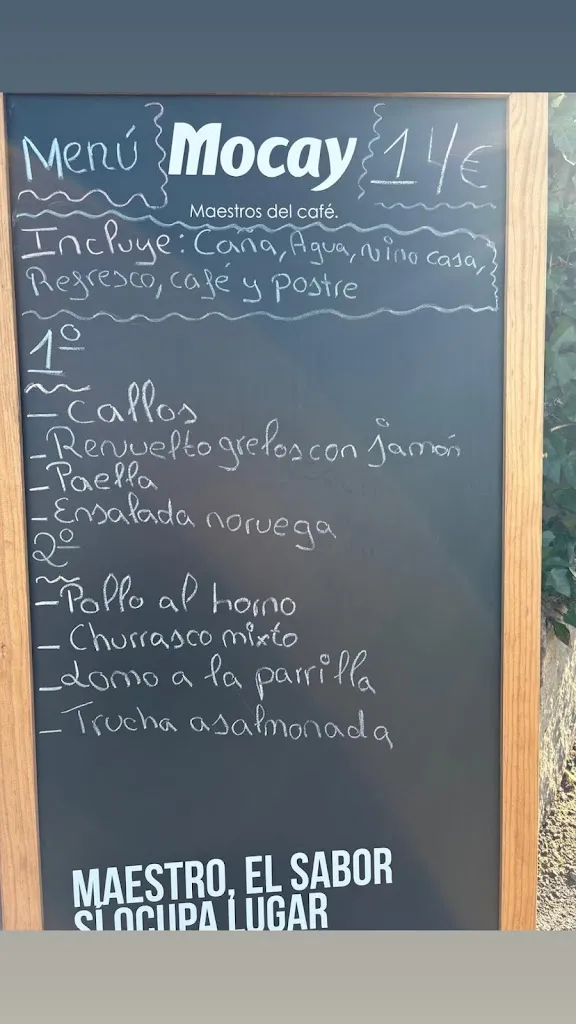 Menú Mocay 14€
Maestros del café.
Incluye: Caña, Agua, vino casa,
Refresco, café y postre
1º
- Callos
- Revuelto grelos con jamón
- Paella
- Ensalada noruega
2º
- Pollo al horno
- Churrasco mixto
- Lomo a la parrilla
- Trucha asalmonada
MAESTRO, EL SABOR
SÍ OCUPA LUGAR